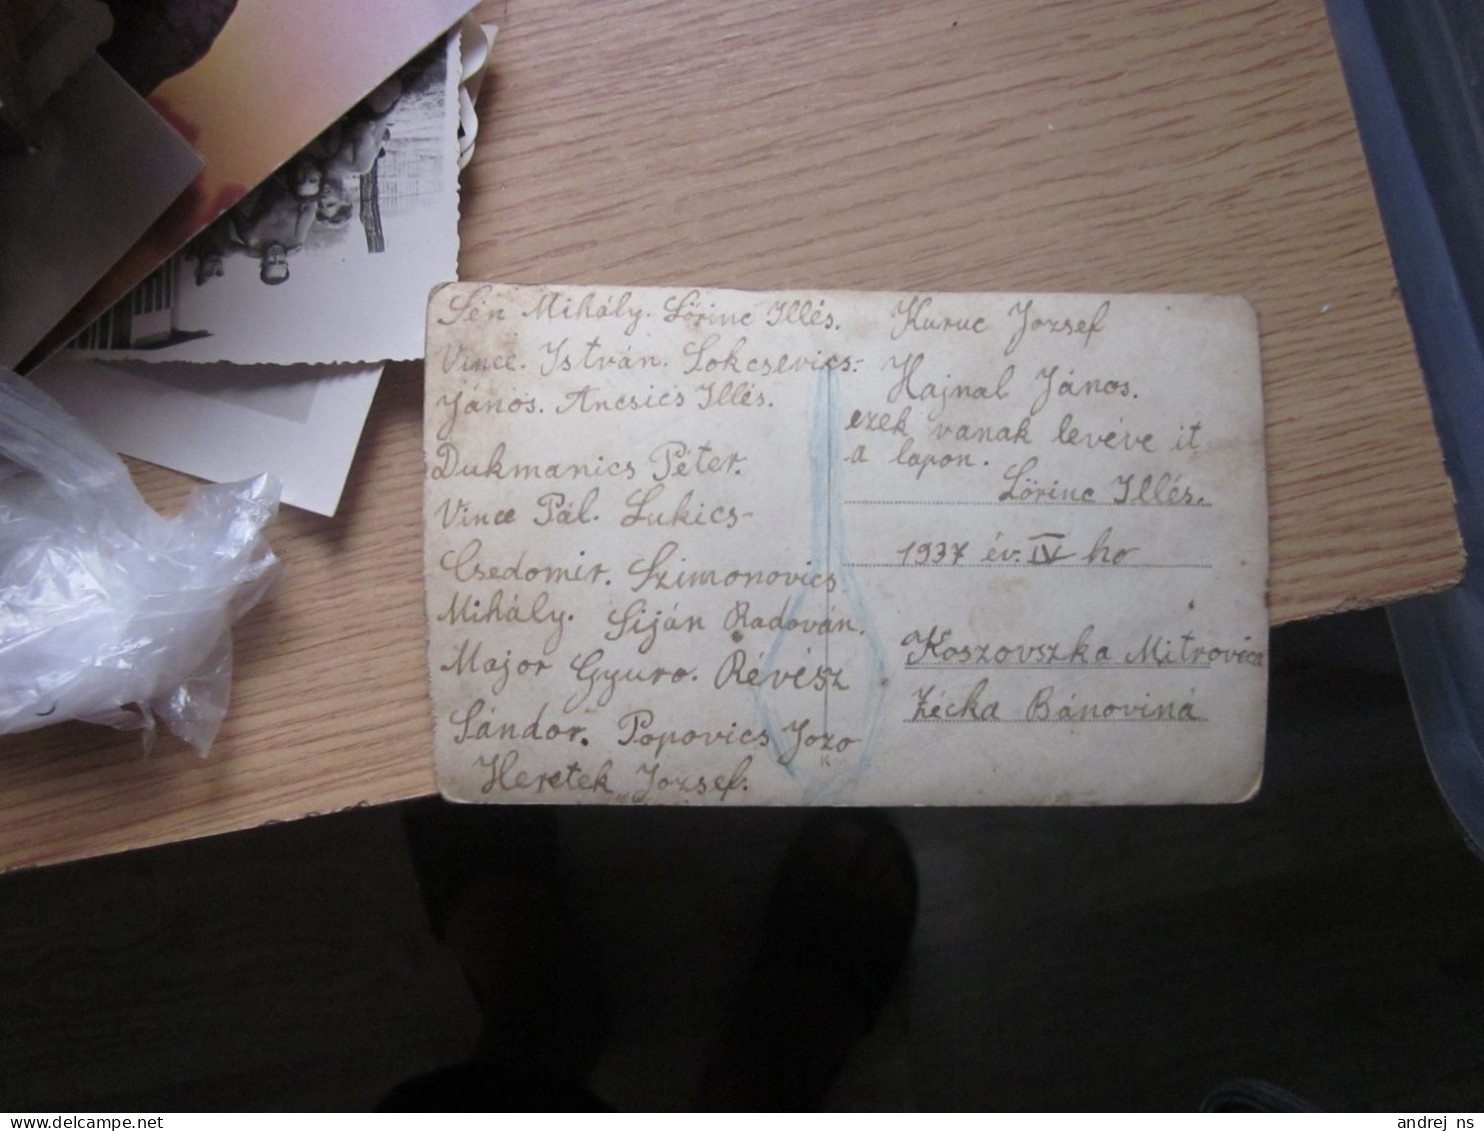 Sén Mihály. Lörinc Illés.
Vince. István. Lokcsevics-
János. Ancsics Illés.
Dukmanics Péter.
Vince Pál. Lukics-
Csedomir. Szimonovics
Mihály. Siján Radován.
Major Gyuro. Révész
Sándor. Popovics Jozo
Heretek Jozsef.
Kuruc Jozsef
Hajnal János.
ezek vanak levéve it
a lapon.
Lörinc Illés.
1937 év. IV ho
Koszovszka Mitrovica
Zécka Bánoviná
andrej_ns